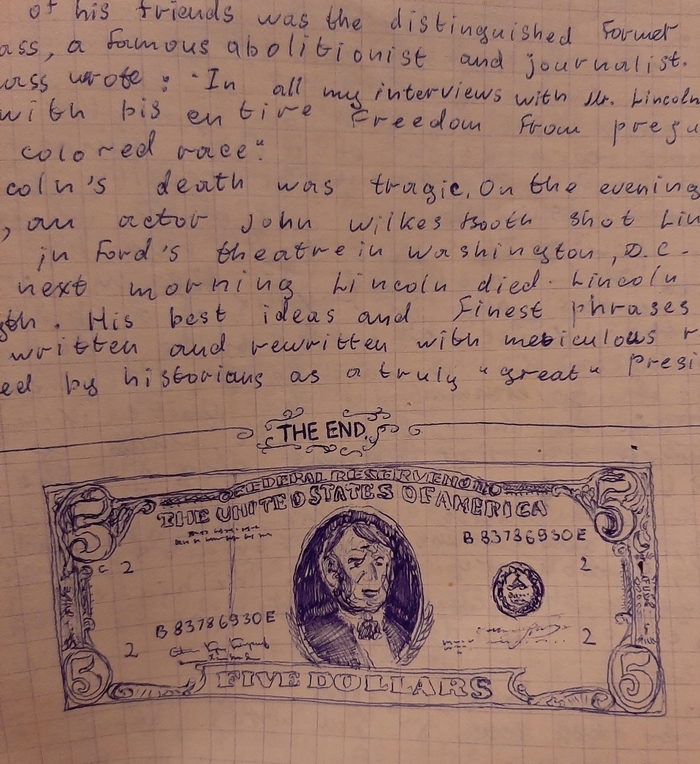 of his friends was the distinguished Former
ass, a famous abolitionist and journalist.
ass wrote: "In all my interviews with Mr. Lincoln
with his entire Freedom From preju
colored race".
coln's death was tragic. On the evening
, an actor John Wilkes Booth shot Lin
in Ford's theatre in Washington, D.C.
next morning Lincoln died. Lincoln
gth. His best ideas and Finest phrases
written and rewritten with meticulous r
ed by historians as a truly "great" Presi
THE END
FEDERAL RESERVE NOTE
THE UNITED STATES OF AMERICA
5 5
B 83786930E
C 2 2
B 83786930E
2 2
5 5
FIVE DOLLARS